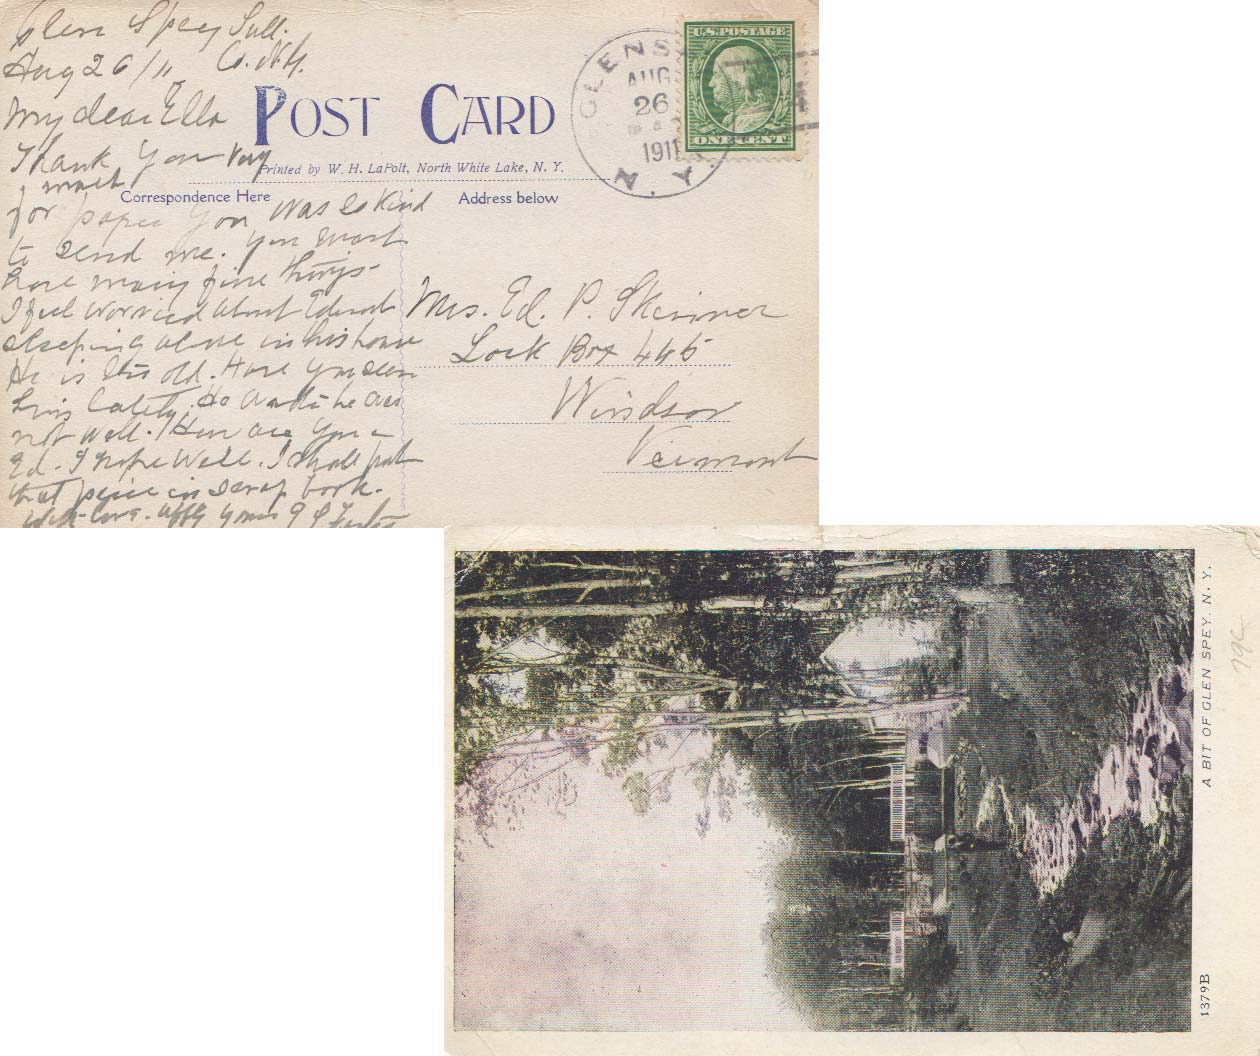 Glen Spey Sull.
Aug 26/11 Co. N.Y.
My dear Ella
Thank you very
much
for paper you was so kind
to send me. You must
have many fine things
I feel worried about Edward
sleeping alone in his house
He is old. Have you seen
him lately. He he was
not well. How are you
Ed. I hope Well. I shall put
that peice in scrap book.
With love. yours
POST CARD
Printed by W. H. LaPolt, North White Lake, N. Y.
Correspondence Here
Address below
GLENS
AUG
26
1911
N.Y.
U.S. POSTAGE
ONE CENT
Mrs. Ed. P. Skinner
Lock Box 445
Windsor
Vermont
A BIT OF GLEN SPEY, N. Y.
1379B